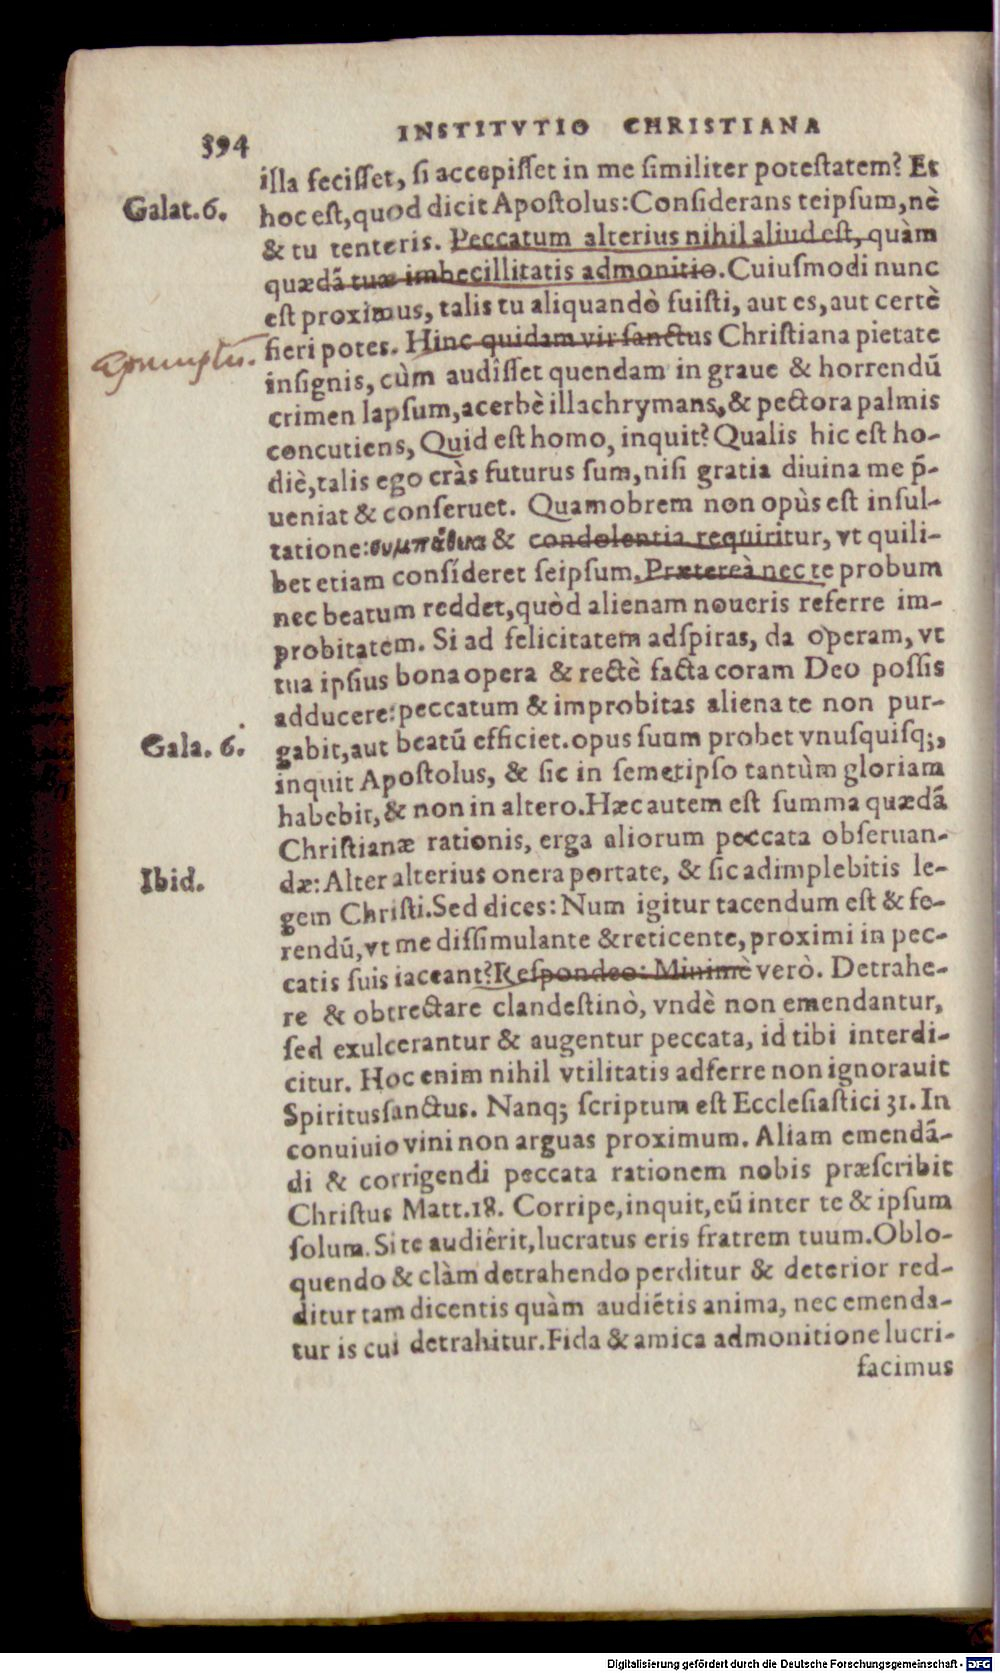 394 INSTITVTIO CHRISTIANA
illa fecisset, si accepisset in me similiter potestatem? Et
Galat. 6. hoc est, quod dicit Apostolus: Considerans teipsum, nè
& tu tenteris. Peccatum alterius nihil aliud est, quàm
quædã tuæ imbecillitatis admonitio. Cuiusmodi nunc
est proximus, talis tu aliquandò fuisti, aut es, aut certè
fieri potes. Hinc quidam vir sanctus Christiana pietate
insignis, cùm audîsset quendam in graue & horrendũ
crimen lapsum, acerbè illachrymans, & pectora palmis
concutiens, Quid est homo, inquit? Qualis hic est ho-
diè, talis ego cràs futurus sum, nisi gratia diuina me p̃-
ueniat & conseruet. Quamobrem non opùs est insul-
tatione: συμπάθεια & condolentia requiritur, vt quili-
bet etiam consíderet seipsum. Prætereà nec te probum
nec beatum reddet, quòd alienam noueris referre im-
probitatem. Si ad felicitatem adspiras, da operam, vt
tua ipsius bona opera & rectè facta coram Deo possis
adducere: peccatum & improbitas aliena te non pur-
Gala. 6. gabit, aut beatũ efficiet. opus suum probet vnusquisq;,
inquit Apostolus, & sic in semetipso tantùm gloriam
habebit, & non in altero. Hæc autem est summa quædã
Christianæ rationis, erga aliorum peccata obseruan-
Ibid. dæ: Alter alterius onera portate, & sic adimplebitis le-
gem Christi. Sed dices: Num igitur tacendum est & fe-
rendũ, vt me dissimulante & reticente, proximi in pec-
catis suis iaceant? Respondeo: Minimè verò. Detrahe-
re & obtrectare clandestinò, vndè non emendantur,
sed exulcerantur & augentur peccata, id tibi interdi-
citur. Hoc enim nihil vtilitatis adferre non ignorauit
Spiritussanctus. Nanq; scriptum est Ecclesiastici 31. In
conuiuio vini non arguas proximum. Aliam emendã-
di & corrigendi peccata rationem nobis præscribit
Christus Matt. 18. Corripe, inquit, eũ inter te & ipsum
solum. Si te audiêrit, lucratus eris fratrem tuum. Oblo-
quendo & clàm detrahendo perditur & deterior red-
ditur tam dicentis quàm audiẽtis anima, nec emenda-
tur is cui detrahitur. Fida & amica admonitione lucri-
facimus
Digitalisierung gefördert durch die Deutsche Forschungsgemeinschaft - DFG